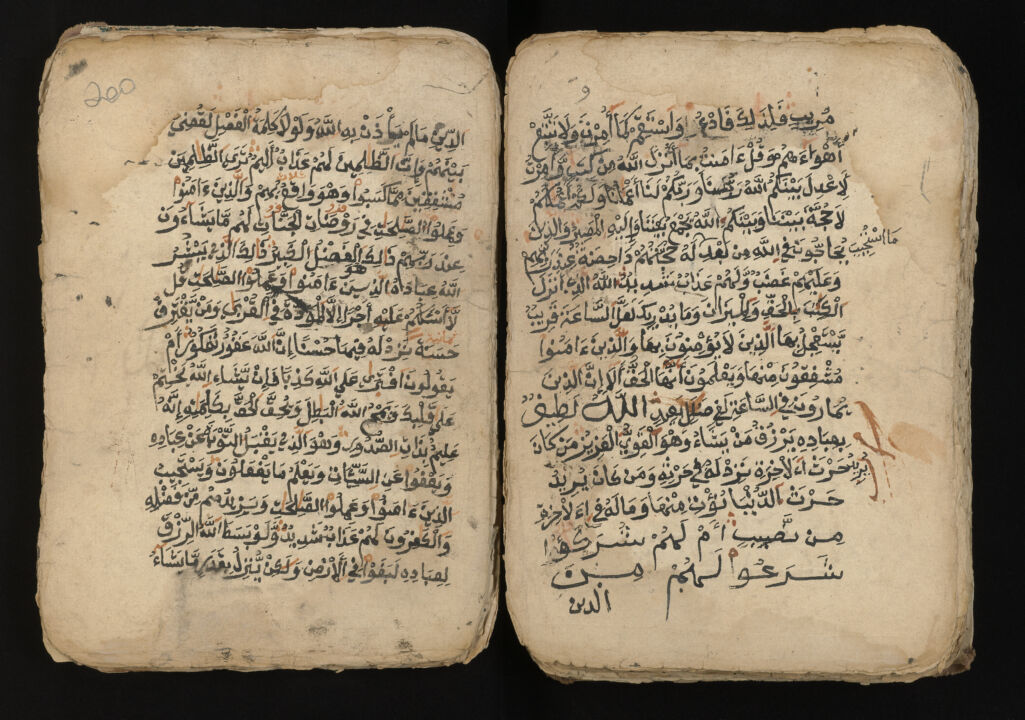 مريب فلذلك فادع واستقم كما أمرت ولا تتبع
أهواءهم وقل ءامنت بما أنزل الله من كتب وأمرت
لأعدل بينكم الله ربنا وربكم لنا أعملنا ولكم أعملكم
لا حجة بيننا وبينكم الله يجمع بيننا وإليه المصير والذين
يحاجون في الله من بعد حجتهم داحضة عند ربهم
ما استجيب
وعليهم غضب ولهم عذاب شديد الله الذي أنزل
الكتب بالحق والميزان وما يدريك لعل الساعة قريب
يستعجل بها الذين لا يؤمنون بها والذين ءامنوا
مشفقون منها ويعلمون أنها الحق ألا إن الذين
يمارون في الساعة لفي ضلل بعيد الله لطيف
بعباده يرزق من يشاء وهو القوي العزيز من كان
يريد حرث الأخرة نزد له في حرثه ومن كان يريد
حرث الدنيا نؤته منها وما له في الأخرة
من نصيب أم لهم شركوا
شرعوا لهم من
الدين
200
الدين ما لم يأذن به الله ولولا كلمة الفصل لقضي
بينهم وإن الظلمين لهم عذاب أليم ترى الظلمين
مشفقين مما كسبوا وهو واقع بهم والذين ءامنوا
وعملوا الصلحت في روضات الجنات لهم ما يشاءون
عند ربهم ذلك هو الفضل الكبير ذلك الذي يبشر
الله عباده الذين ءامنوا وعملوا الصلحت قل
لا أسئلكم عليه أجرا إلا المودة في القربى ومن يقترف
حسنة نزد له فيها حسنا إن الله غفور شكور أم
يقولون افترى على الله كذبا فإن يشاء الله يختم
على قلبك ويمح الله البطل ويحق الحق بكلمته إنه
عليم بذات الصدور وهو الذي يقبل التوبة عن عباده
ويعفوا عن السيئات ويعلم ما يفعلون ويستجيب
الذين ءامنوا وعملوا الصلحت ويزيدهم من فضله
والكفرون لهم عذاب شديد ولو بسط الله الرزق
لعباده لبغوا في الأرض ولكن ينزل بقدر ما يشاء